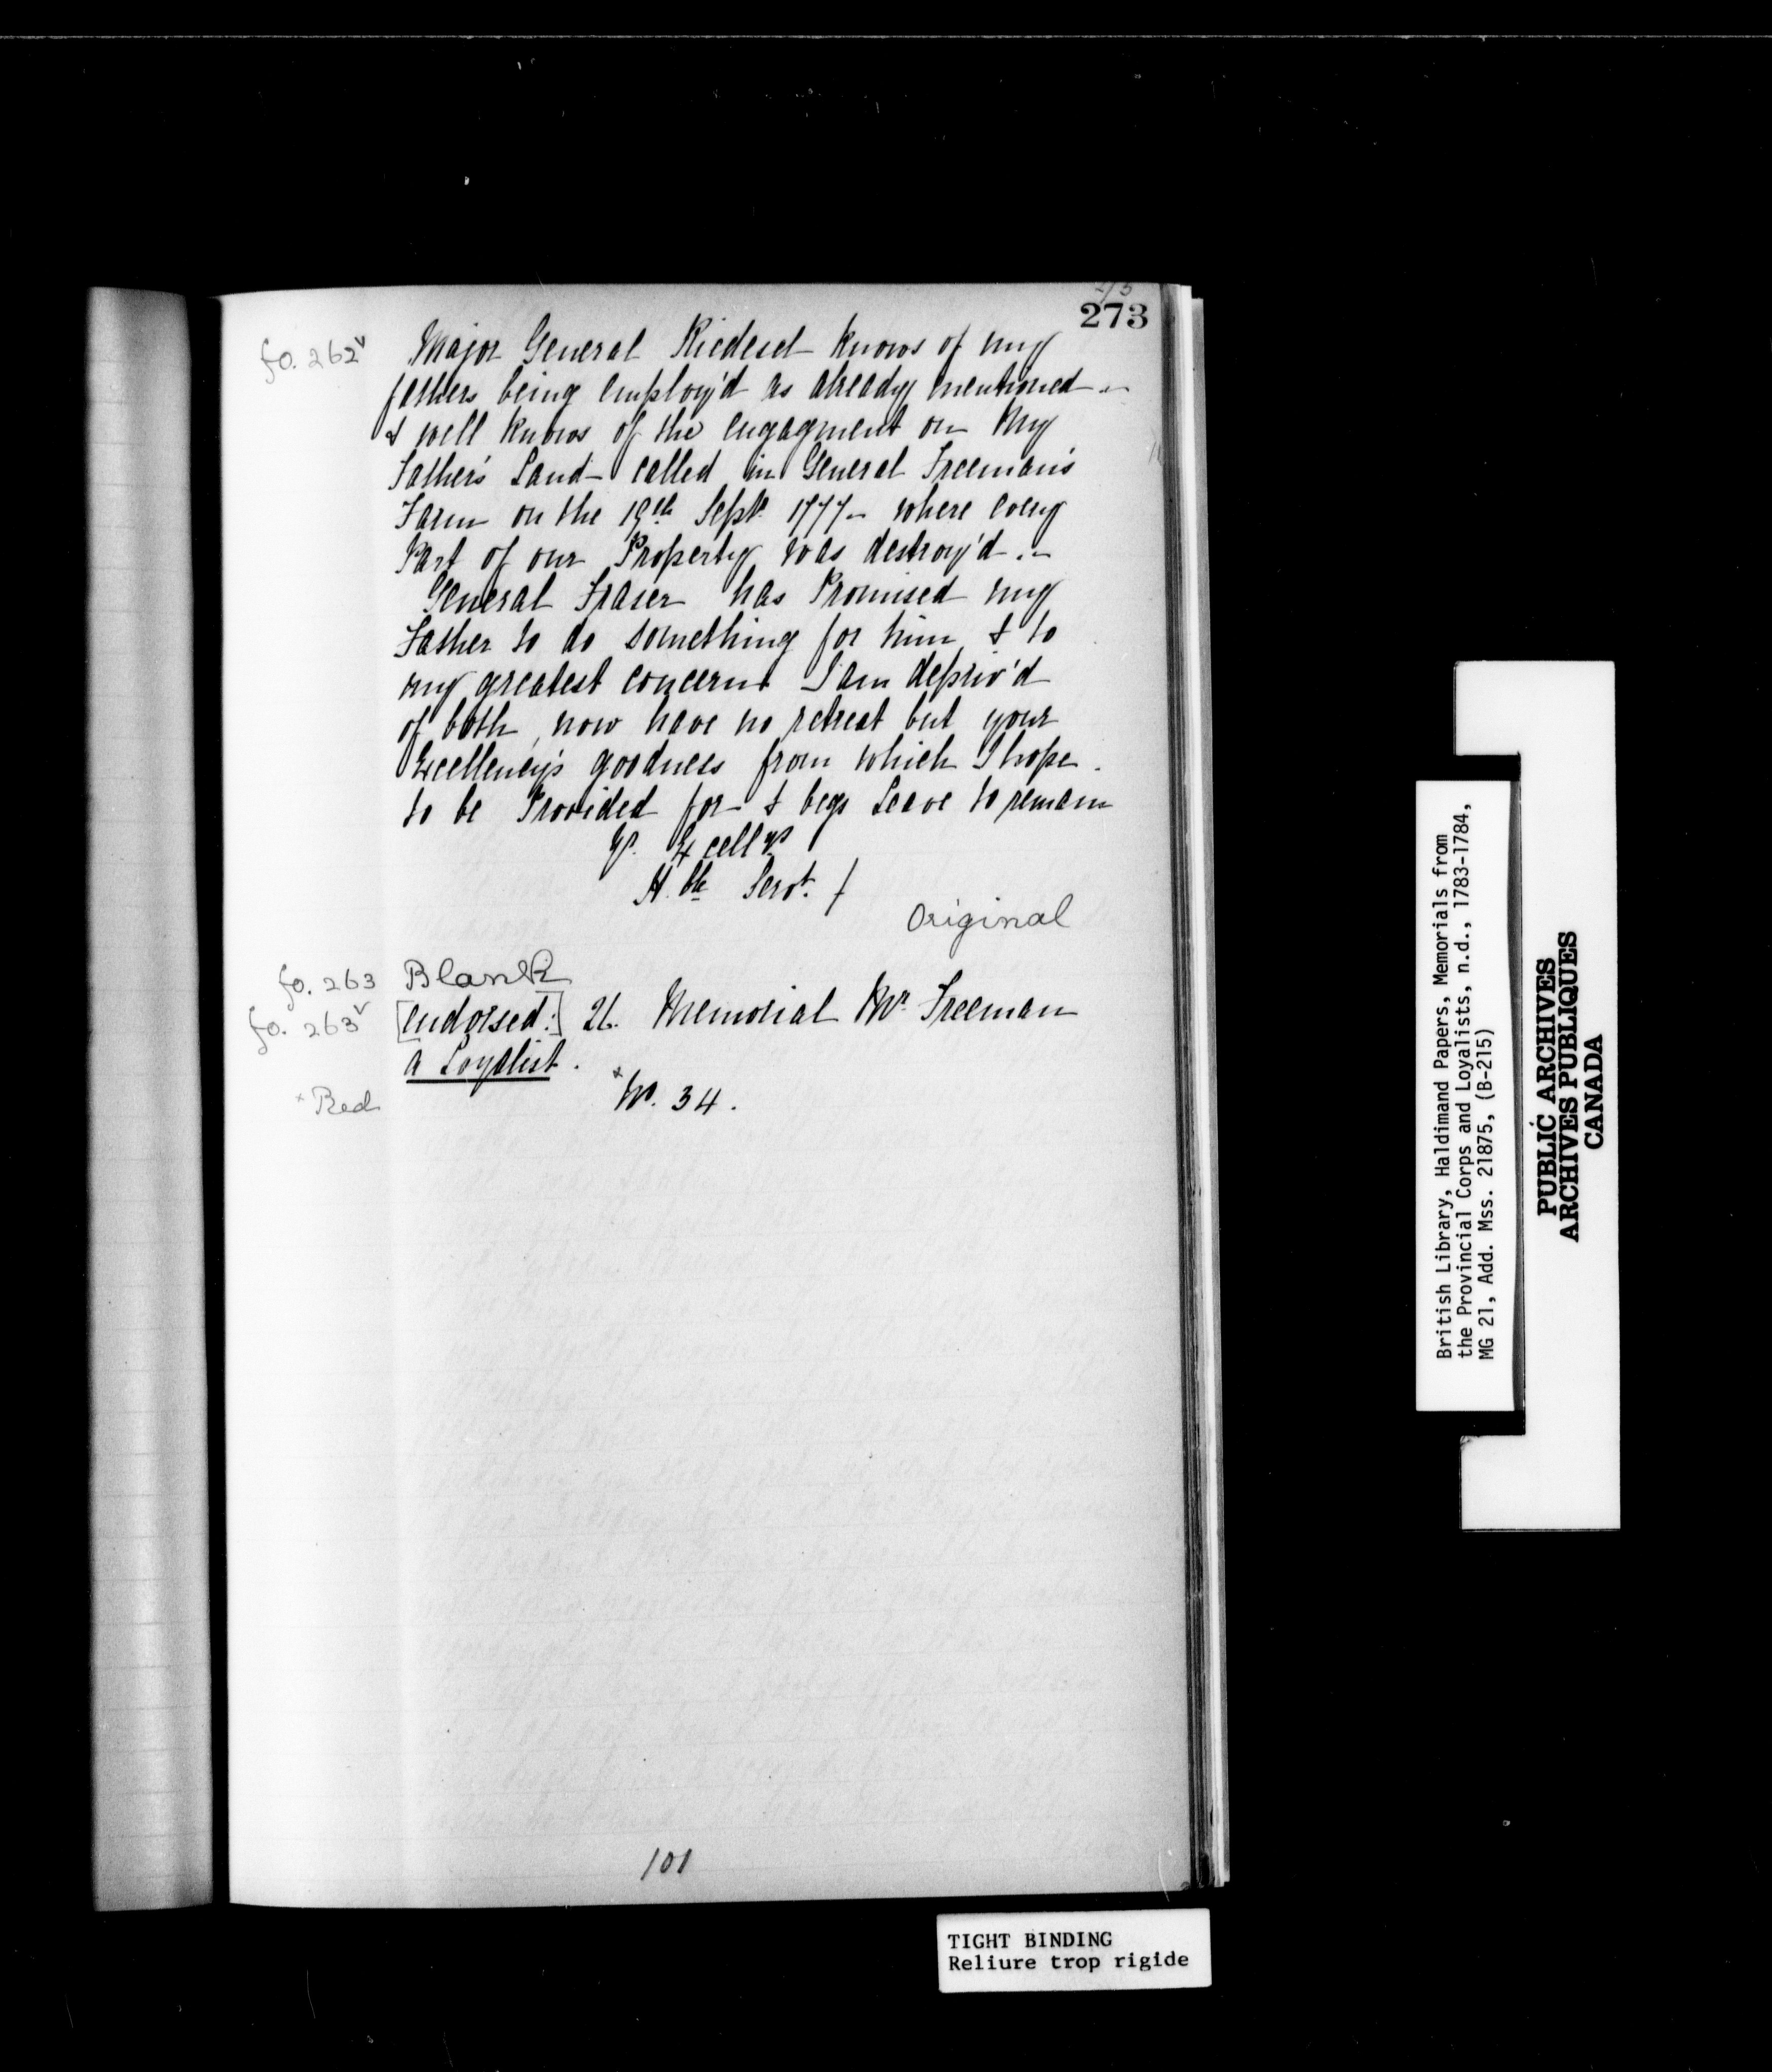 273
273
fo. 262v
Major General Riedesel knows of my
fathers being employ'd as already mentioned -
& well knows of the engagment on My
Father's Land - called in General Freeman's
Farm on the 19th Sept. 1777 - where every
Part of our Property was destroy'd -
General Fraser has Promised my
Father to do something for him & to
my greatest concern I am depriv'd
of both, now have no retreat but your
Excellency's goodness from which I hope
to be Provided for - & begs Leave to remain
Yr. Excellys
H. ble Servt. /
Original
fo. 263 Blank
fo. 263v [endorsed:] 26. Memorial Mr. Freeman
a Loyalist.
x Red
x No. 34.
101
British Library, Haldimand Papers, Memorials from
the Provincial Corps and Loyalists, n.d., 1783-1784,
MG 21, Add. Mss. 21875, (B-215)
PUBLIC ARCHIVES
ARCHIVES PUBLIQUES
CANADA
TIGHT BINDING
Reliure trop rigide